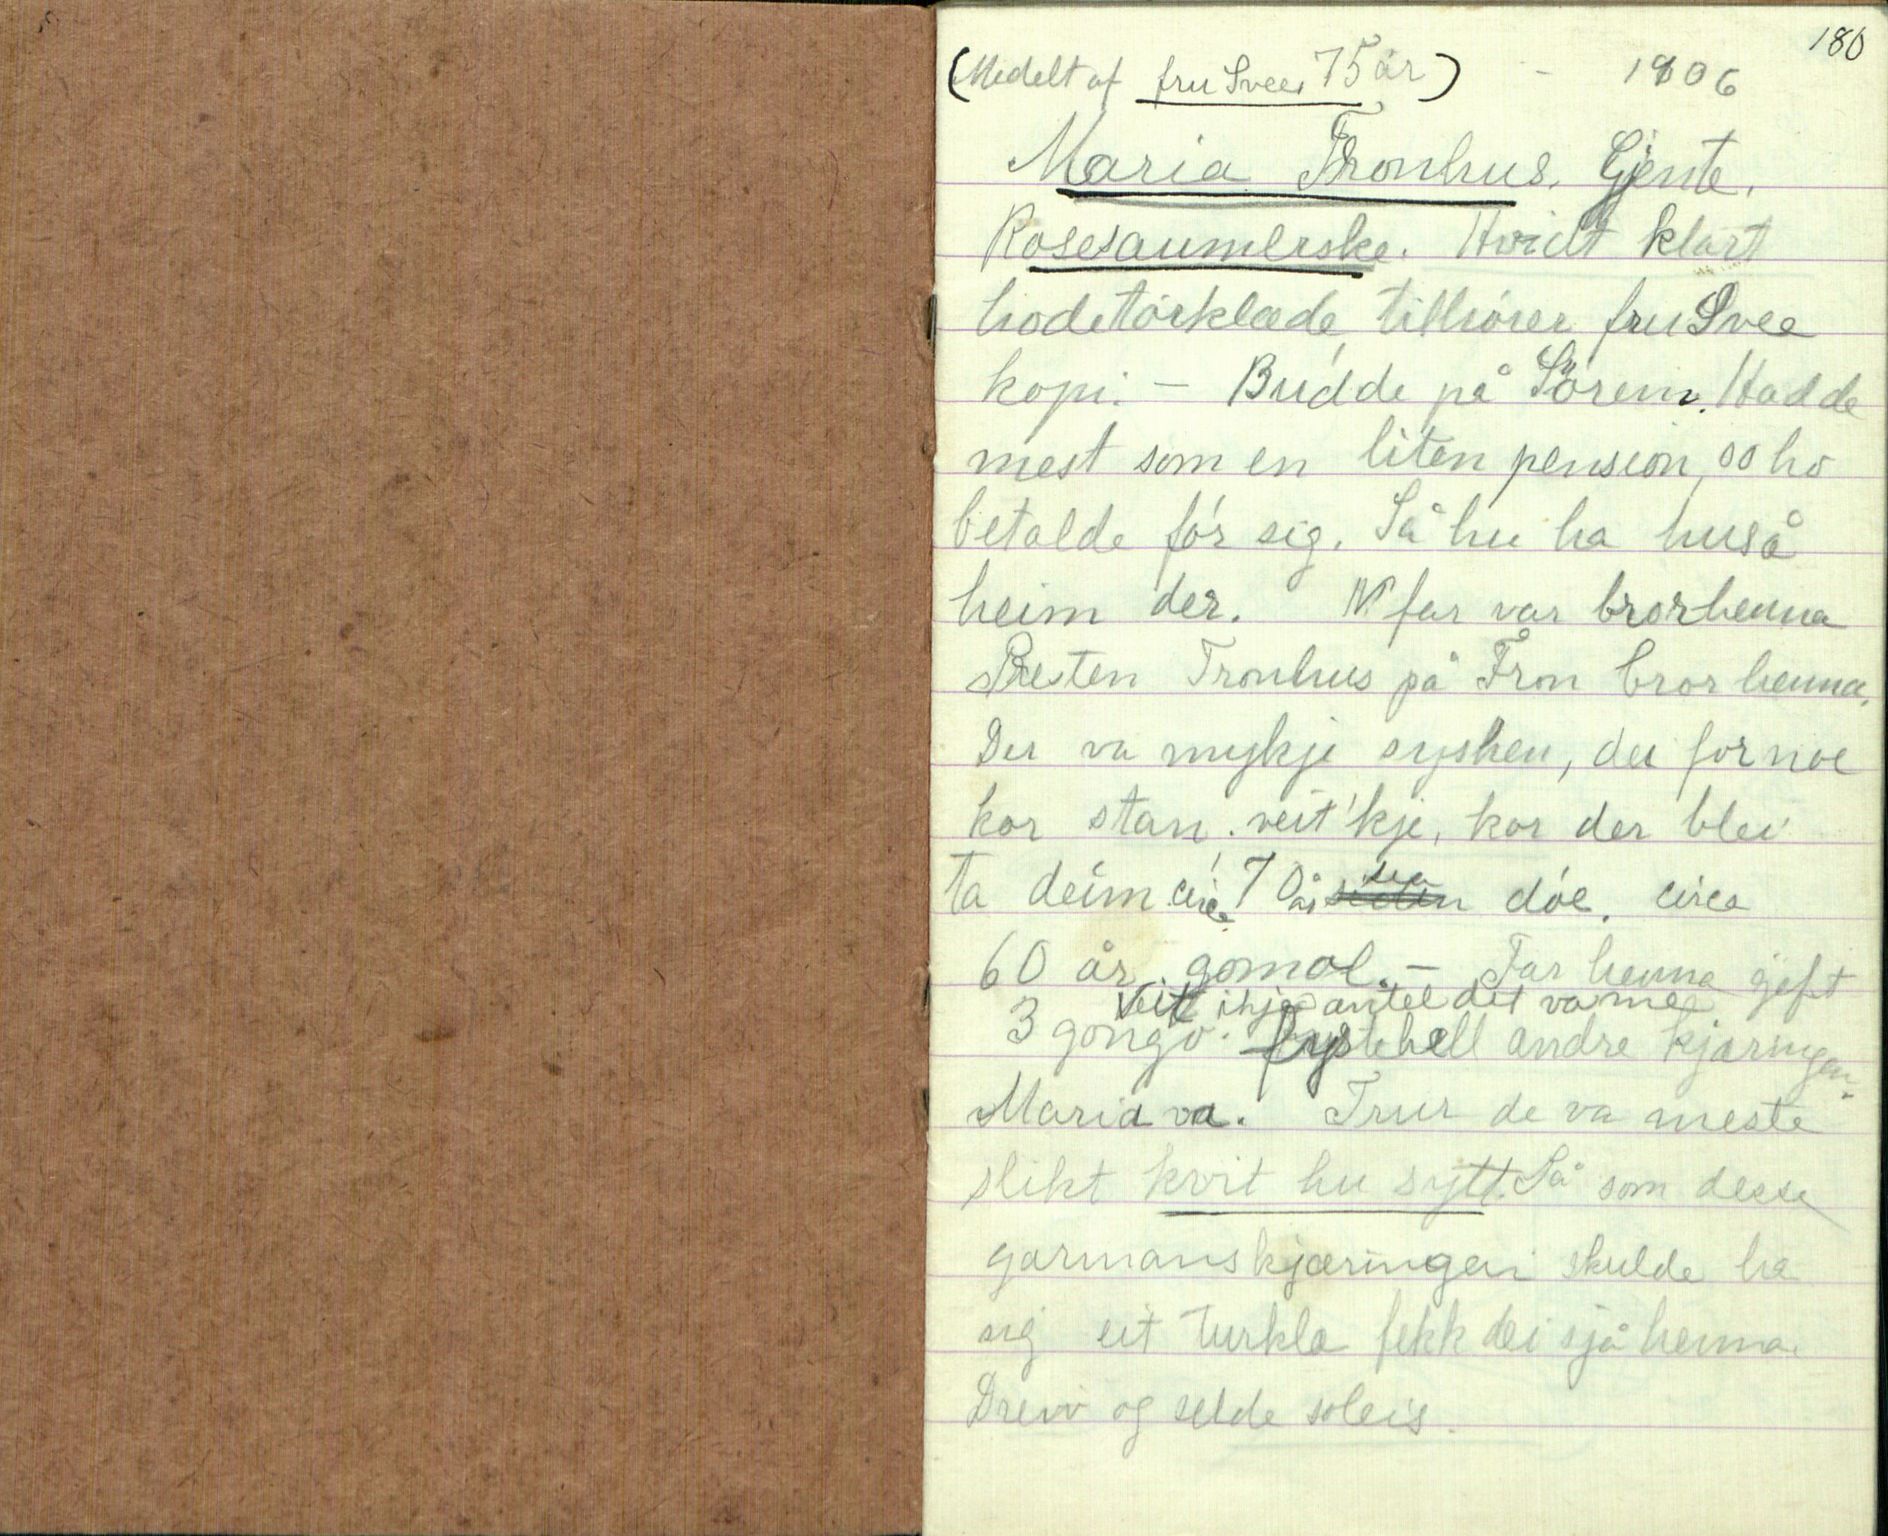 180
(Medelt af fru Svee, 75 år) - 1806
Maria Tronhus. Gjente.
Rosesaumerske. Hvidt klart
hodetørklæde, tilhører fru Svee
kopi. - Budde på Sørem. Hadde
mest som en liten pension, oo ho
betalde før sig. Så hu ha huså
heim der. far var bror henna
Presten Tronhus på Fron bror henna.
Der va mykje sysken, dei for noe
kor stan. veit'kje, kor der blei
ta deim. circa 70 år sea døe. circa
60 år gomol. - Far henna gjeft
Veit ikje antel det va me
3 gongo. fyste hell andre kjæringen
Maria va. Trur de va meste
slikt kvit hu sytt. Så som desse
garmanskjæringan skulde ha
sig eit turkla fekk dei sjå henna.
Dreiv og selde soleis.